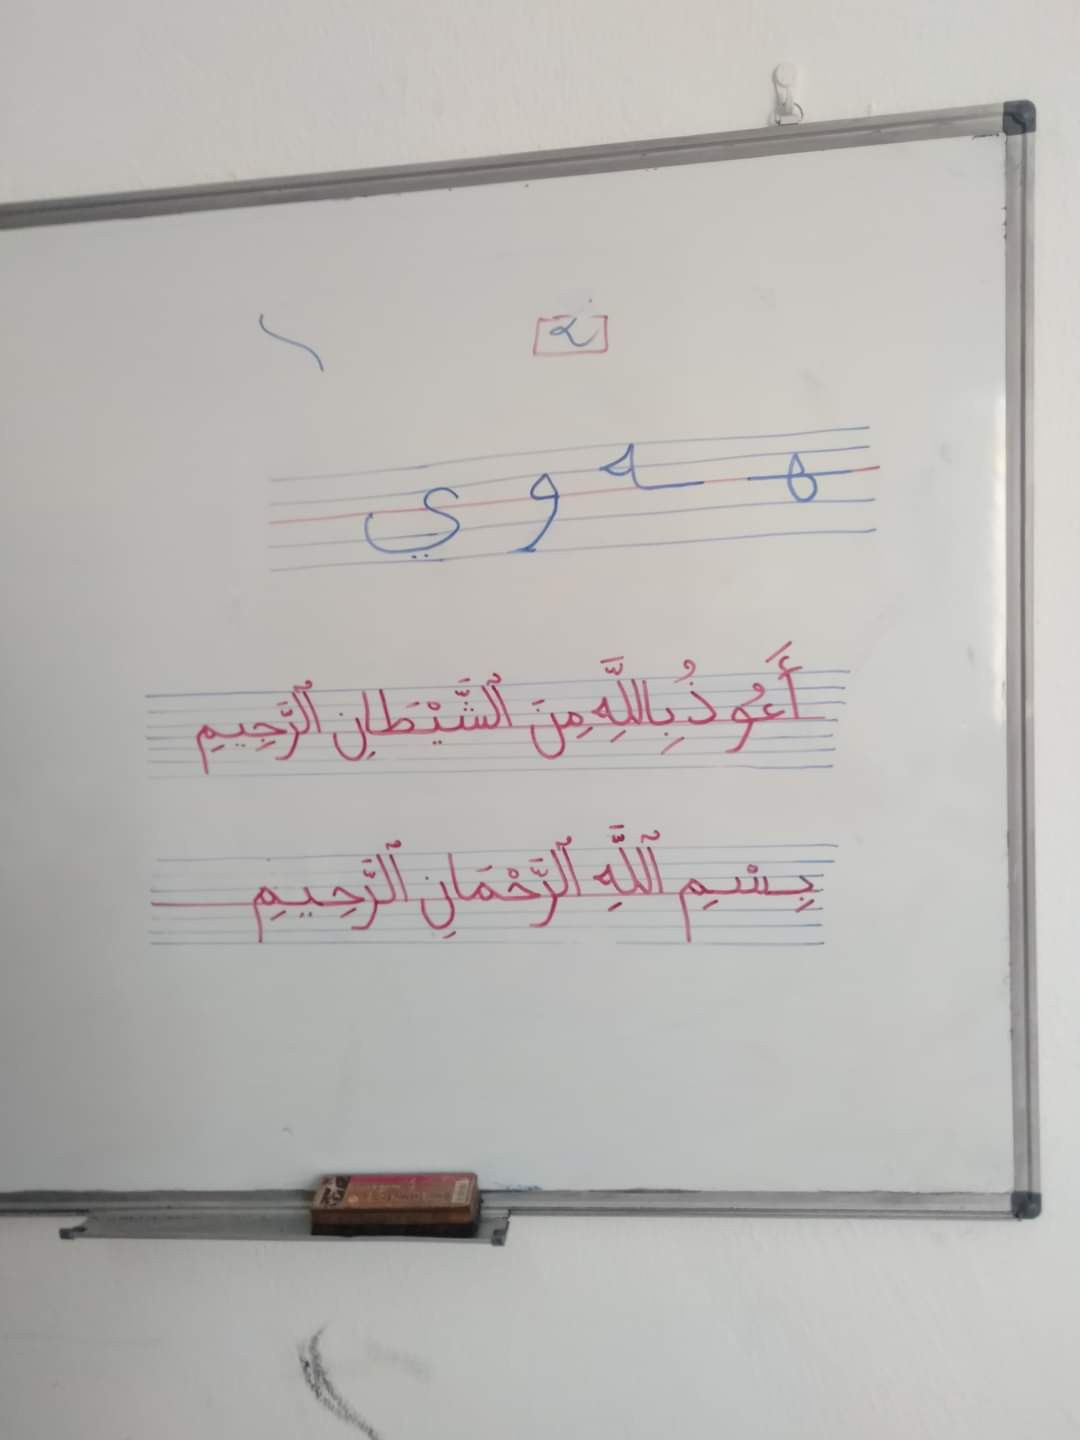 ـهـ ـه و ي
أَعُوذُ بِاللَّهِ مِنَ ٱلشَّيْطَانِ ٱلرَّحِيمِ
بِسْمِ ٱللَّهِ ٱلرَّحْمَانِ ٱلرَّحِيمِ